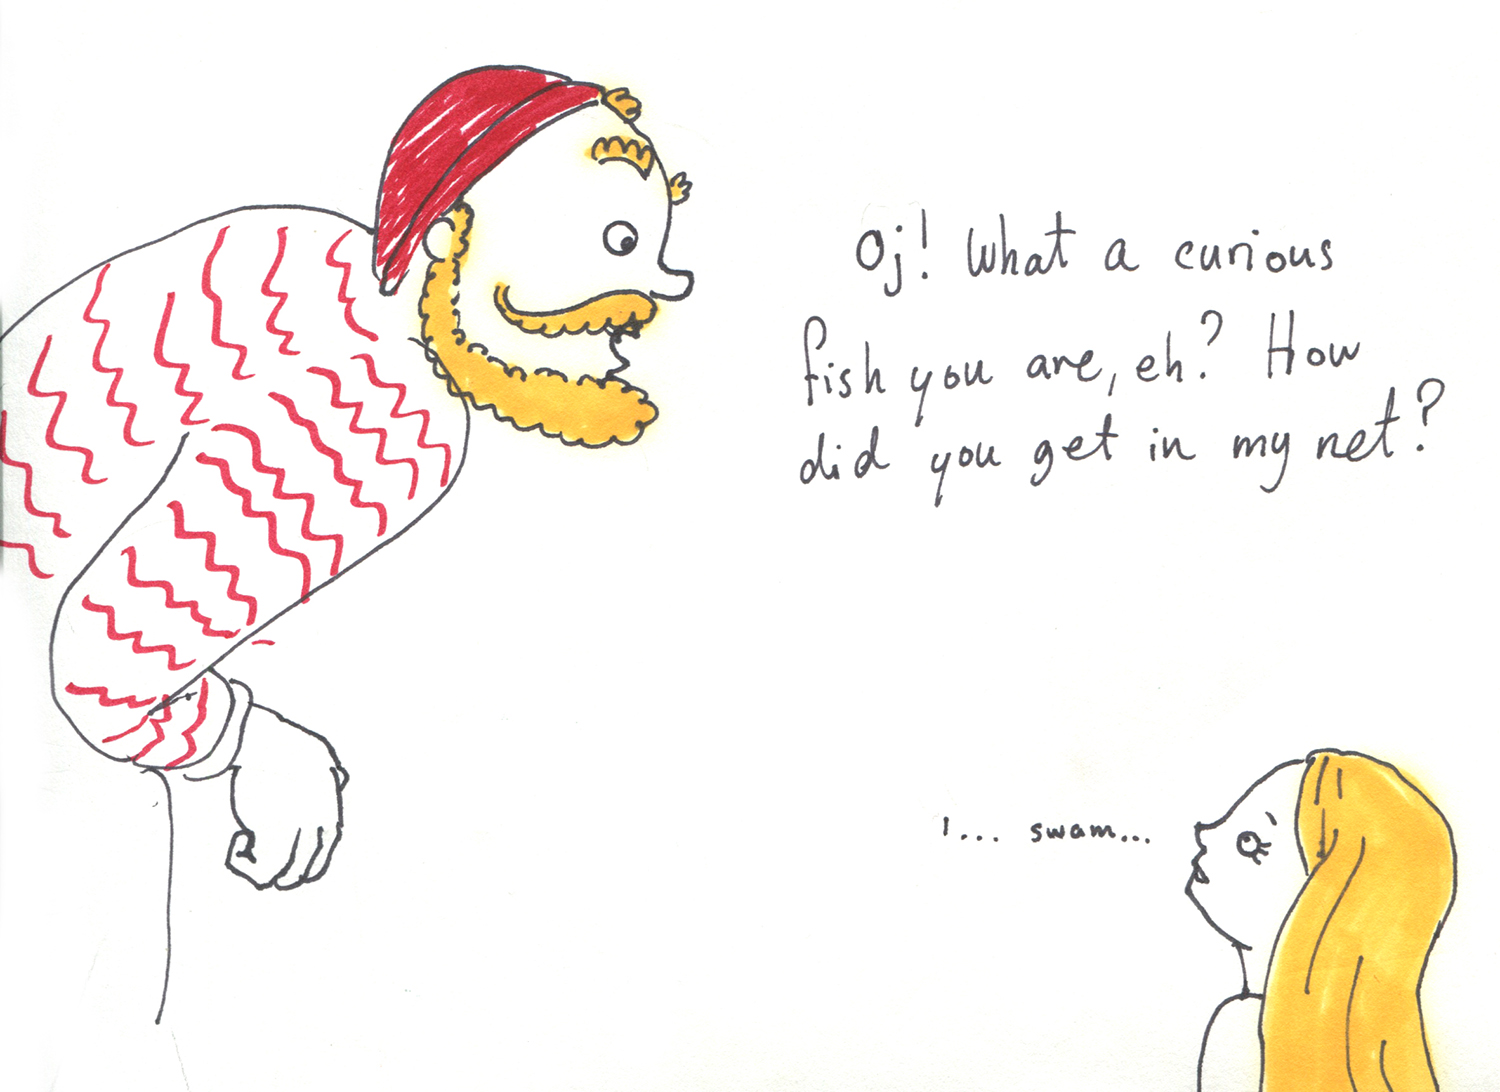 Oj! What a curious
fish you are, eh? How
did you get in my net?
I... swam...